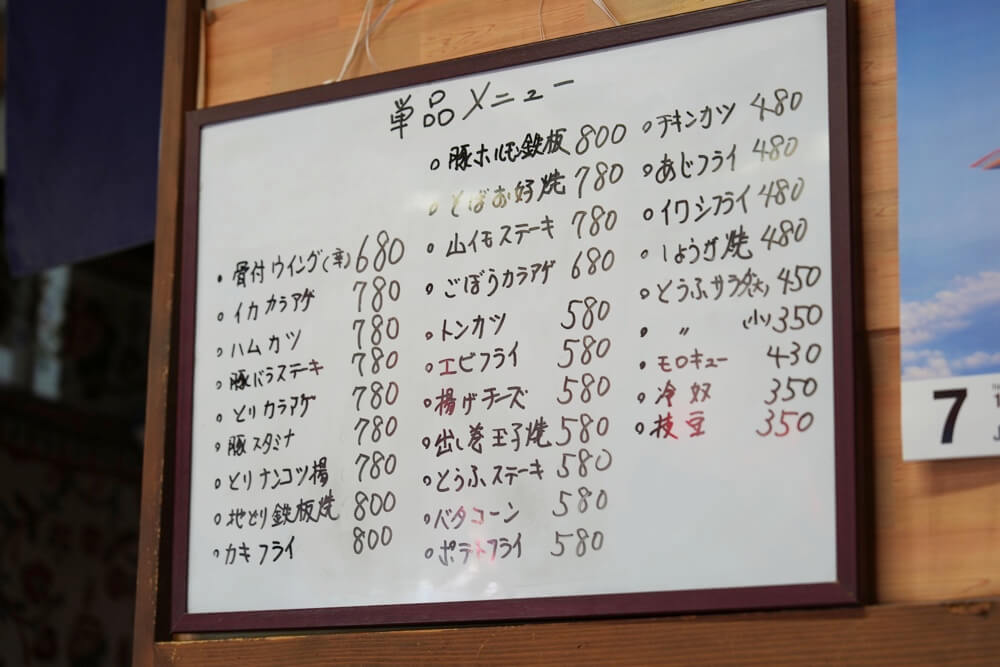 単品メニュー
・骨付ウイング(辛) 680
・イカカラアゲ 780
・ハムカツ 780
・豚バラステーキ 780
・とりカラアゲ 780
・豚スタミナ 780
・とりナンコツ揚 780
・地どり鉄板焼 800
・カキフライ 800
・豚ホルモン鉄板 800
・そばお好焼 780
・山イモステーキ 780
・ごぼうカラアゲ 680
・トンカツ 580
・エビフライ 580
・揚げチーズ 580
・出し巻玉子焼 580
・とうふステーキ 580
・バタコーン 580
・ポテトフライ 580
・チキンカツ 480
・あじフライ 480
・イワシフライ 480
・しょうが焼 480
・とうふサラダ(大) 450
・〃 (小) 350
・モロキュー 430
・冷奴 350
・枝豆 350
7